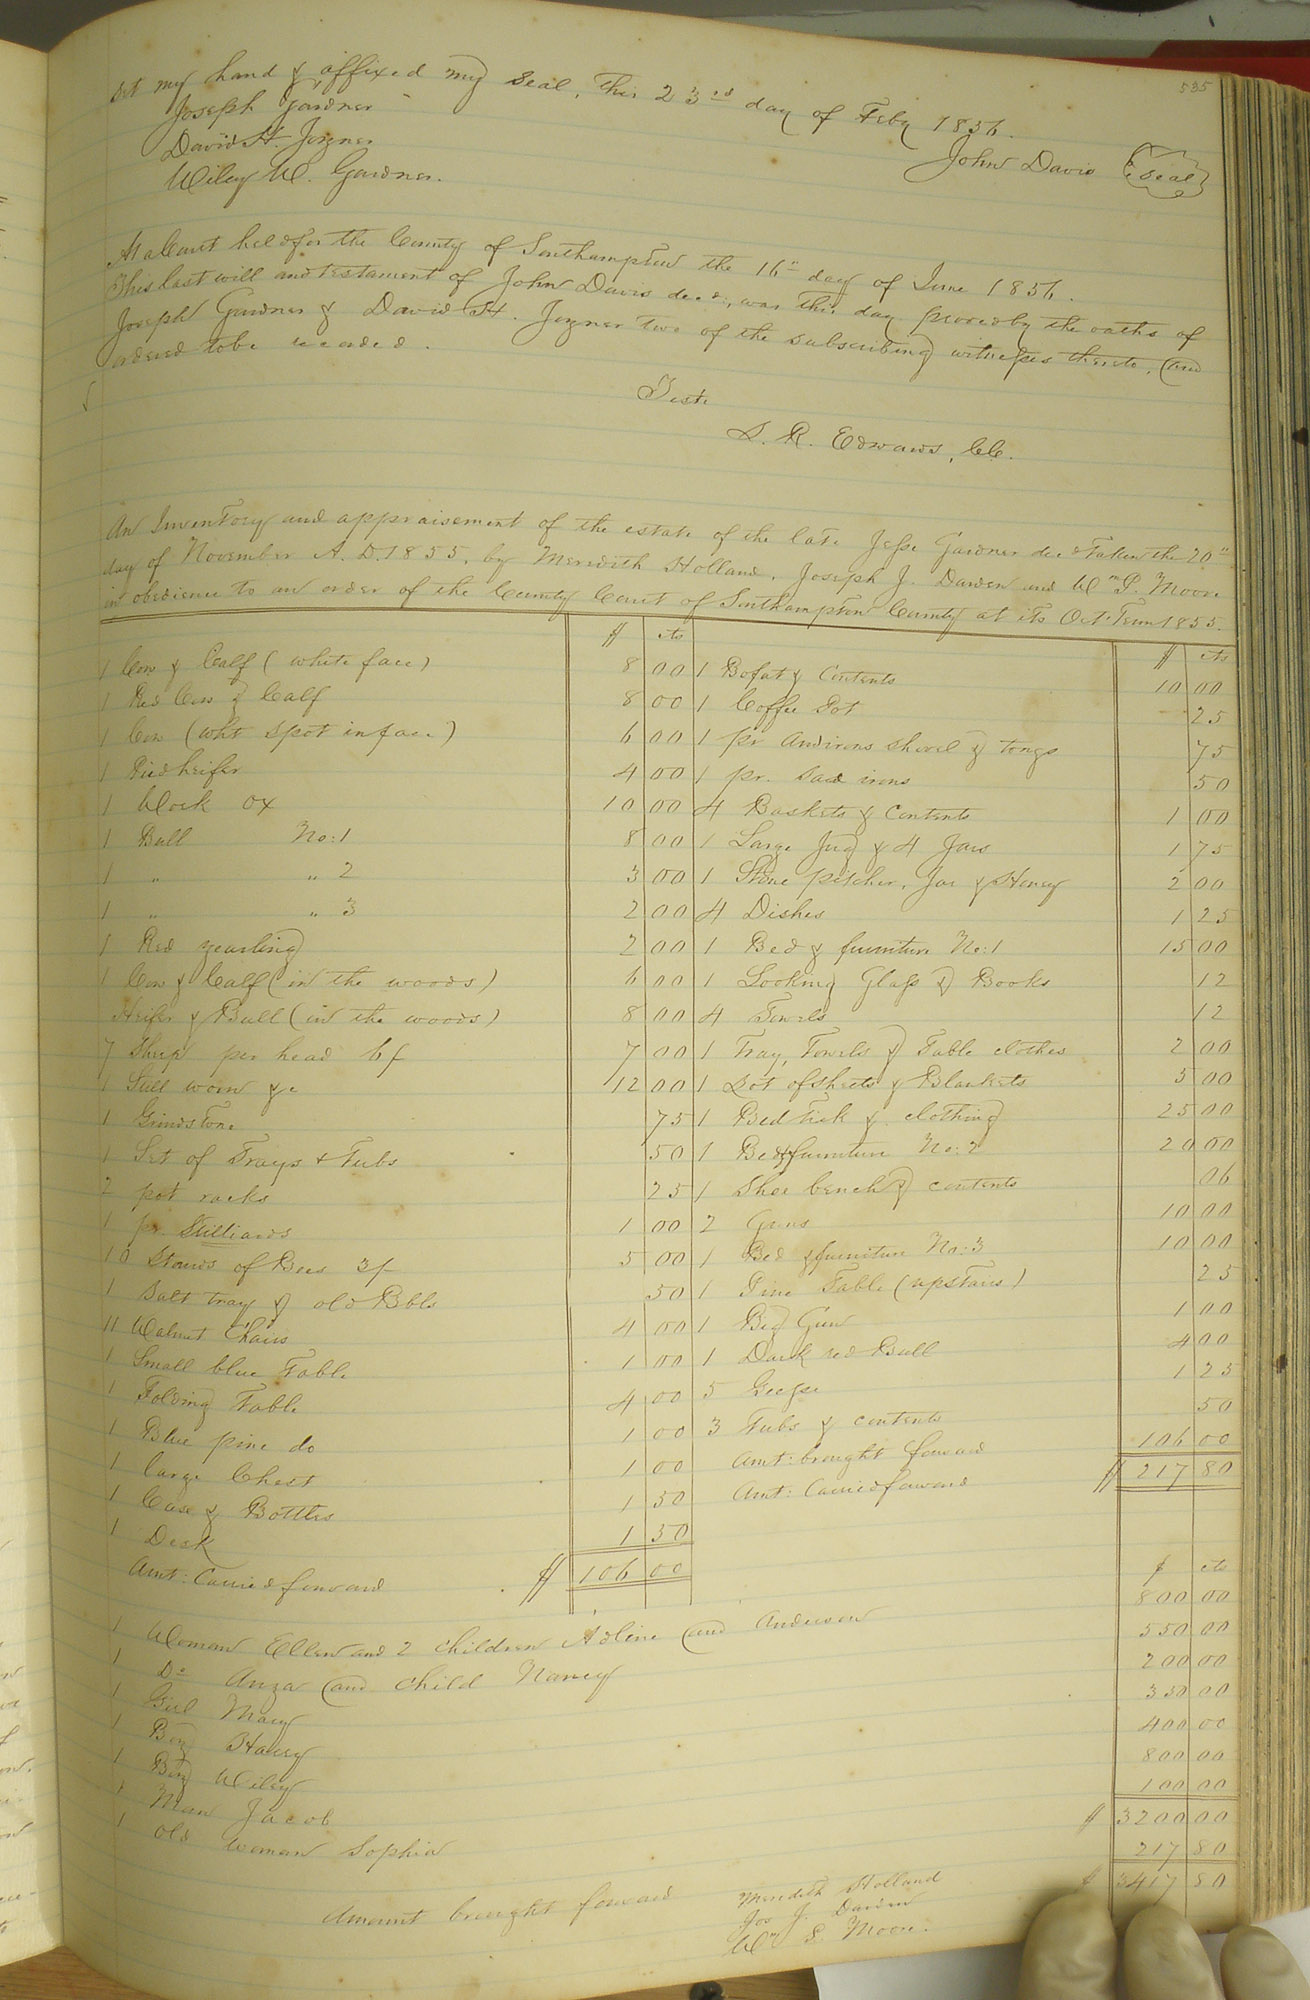 535
set my hand & affixed my seal, this 23rd day of Feby 1856.
Joseph Gardner
David H. Joyner
Wiley W. Gardner.
John Davis (Seal)
At a Court held for the County of Southampton the 16th day of June 1856.
This last will and testament of John Davis decd, was this day proved by the oaths of
Joseph Gardner & David H. Joyner two of the subscribing witnesses thereto, and
ordered to be recorded.
Teste
L. R. Edwards, CC.
An Inventory and appraisement of the estate of the late Jesse Gardner decd Taken the 20th
day of November A. D 1855, by Meredith Holland, Joseph J. Darden and Wm P. Moore
in obedience to an order of the County Court of Southampton County at its Oct: Term 1855.
$ cts
1 Cow & Calf (white face) 8 00
1 Red Cow & Calf 8 00
1 Cow (wht spot in face) 6 00
1 Pied heifer 4 00
1 Work ox 10 00
1 Bull No: 1 8 00
1 " " 2 3 00
1 " " 3 2 00
1 Red yearling 2 00
1 Cow & Calf (in the woods) 6 00
Heifer & Bull (in the woods) 8 00
7 Sheep per head 6/ 7 00
1 Still worm &c 12 00
1 Grindstone 75
1 Set of Trays & Tubs 50
2 pot racks 25
1 pr. Stilliards 1 00
10 Stands of Bees 3/ 5 00
1 Salt tray & old Bbls 50
11 Walnut Chairs 4 00
1 Small blue Table 1 00
1 Folding Table 4 00
1 Blue pine do 1 00
1 large Chest 1 00
1 Case & Bottles 1 50
1 Desk 1 50
Amt: Carried forward $ 106 00
$ cts
1 Bofat & Contents 10 00
1 Coffee Pot 25
1 pr Andirons Shovel & tongs 75
1 pr. Sad irons 50
4 Baskets & Contents 1 00
1 Large Jug & 4 Jars 1 75
1 Stone pitcher, Jar & Honey 2 00
4 Dishes 1 25
1 Bed & furniture No: 1 15 00
1 Looking Glass & Books 12
4 Towels 12
1 Tray, Towels & Table clothes 2 00
1 Lot of sheets & Blankets 5 00
1 Bed Tick & clothing 25 00
1 Bed & furniture No: 2 20 00
1 Shoe bench & contents 06
2 Guns 10 00
1 Bed & furniture No: 3 10 00
1 Pine Table (upstairs) 25
1 Big Gun 1 00
1 Dark red Bull 4 00
5 Geese 1 25
3 Tubs & contents 50
Amt: brought forward 106 00
Amt: Carried forward $ 217 80
$ cts
1 Woman Ellen and 2 children Adline and Anderson 800 00
1 Do Anza and child Nancy 550 00
1 Girl Mary 200 00
1 Boy Harry 350 00
1 Boy Wiley 400 00
1 Man Jacob 800 00
1 old woman Sophia 100 00
$ 3200 00
Amount brought forward 217 80
$ 3417 80
Meredith Holland
Jos J. Darden
Wm P. Moore.